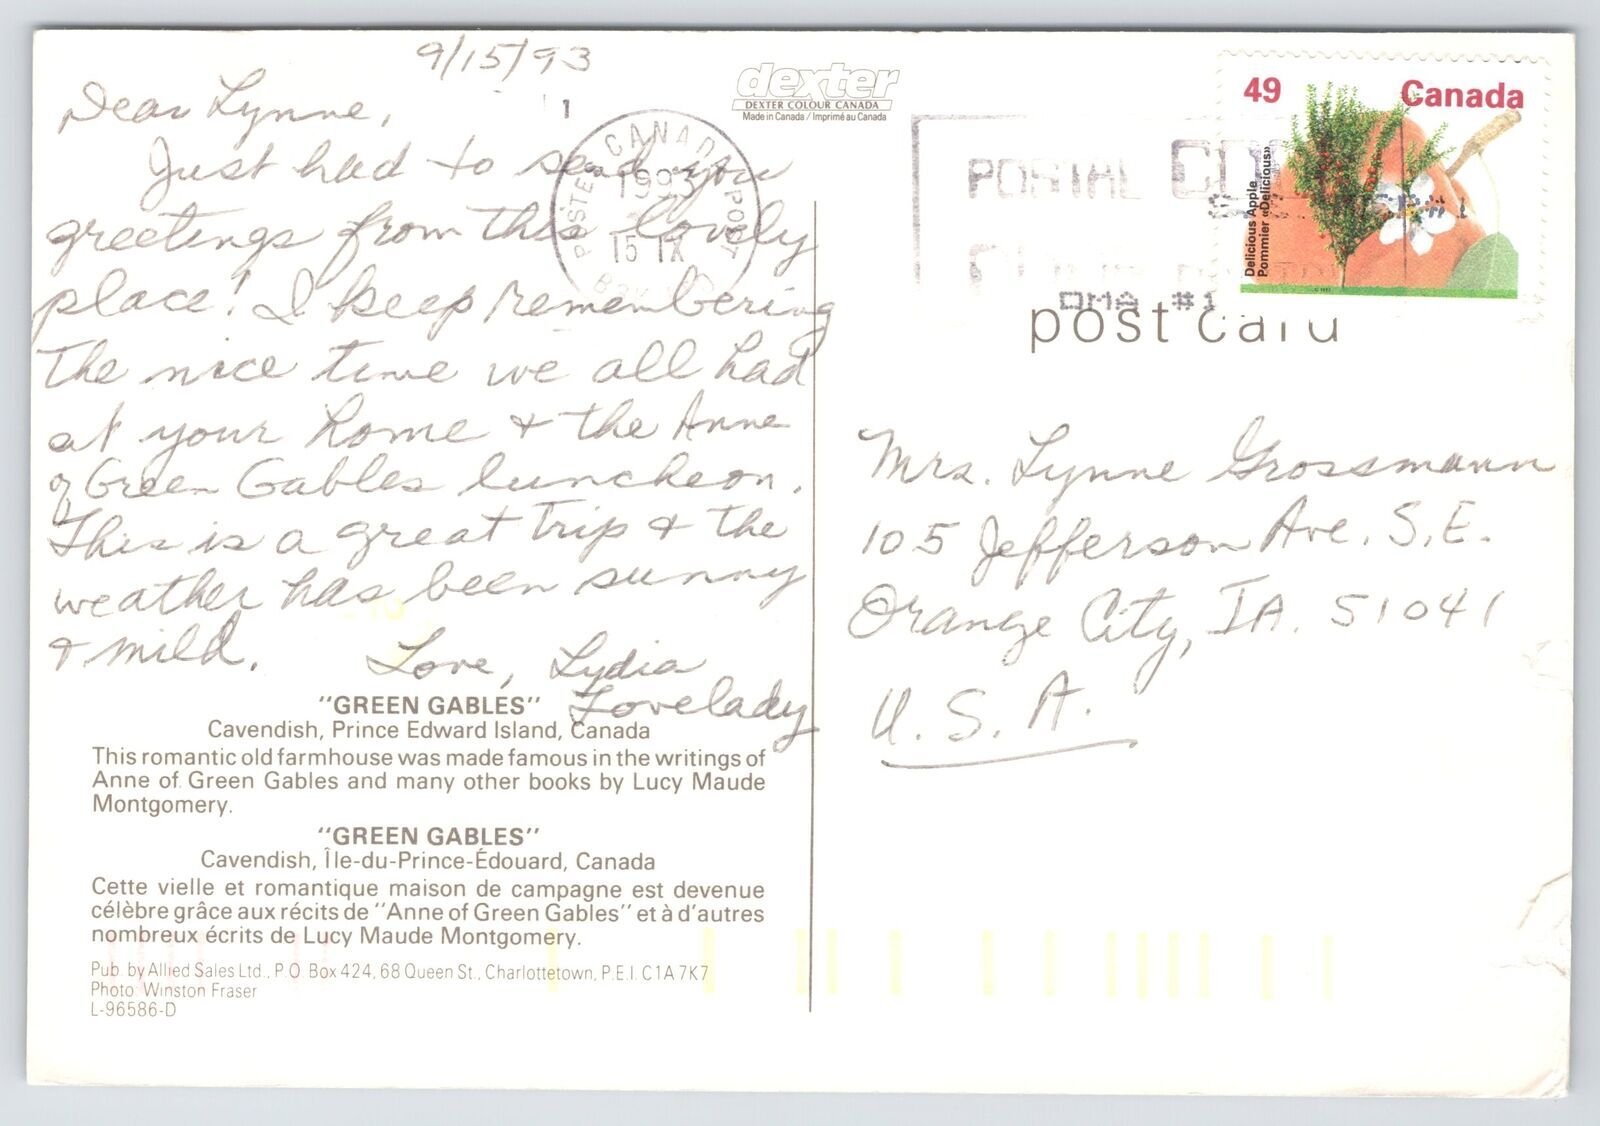 9/15/93
Dear Lynne,
Just had to send you
greetings from this lovely
place! I keep remembering
the nice time we all had
at your home & the Anne
of Green Gables luncheon.
This is a great trip & the
weather has been sunny
& mild.
Love, Lydia
Lovelady
"GREEN GABLES"
Cavendish, Prince Edward Island, Canada
This romantic old farmhouse was made famous in the writings of
Anne of Green Gables and many other books by Lucy Maude
Montgomery.
"GREEN GABLES"
Cavendish, Île-du-Prince-Édouard, Canada
Cette vielle et romantique maison de campagne est devenue
célèbre grâce aux récits de "Anne of Green Gables" et à d'autres
nombreux écrits de Lucy Maude Montgomery.
Pub. by Allied Sales Ltd., P.O. Box 424, 68 Queen St., Charlottetown, P.E.I. C1A 7K7
Photo: Winston Fraser
L-96586-D
dexter
DEXTER COLOUR CANADA
Made in Canada / Imprimé au Canada
1
CANADA POST
POSTE
1993
15 IX
POSTAL
OMA #1
49 Canada
Delicious Apple
Pommier «Delicious»
post card
Mrs. Lynne Grossmann
105 Jefferson Ave. S.E.
Orange City, IA. 51041
U.S.A.